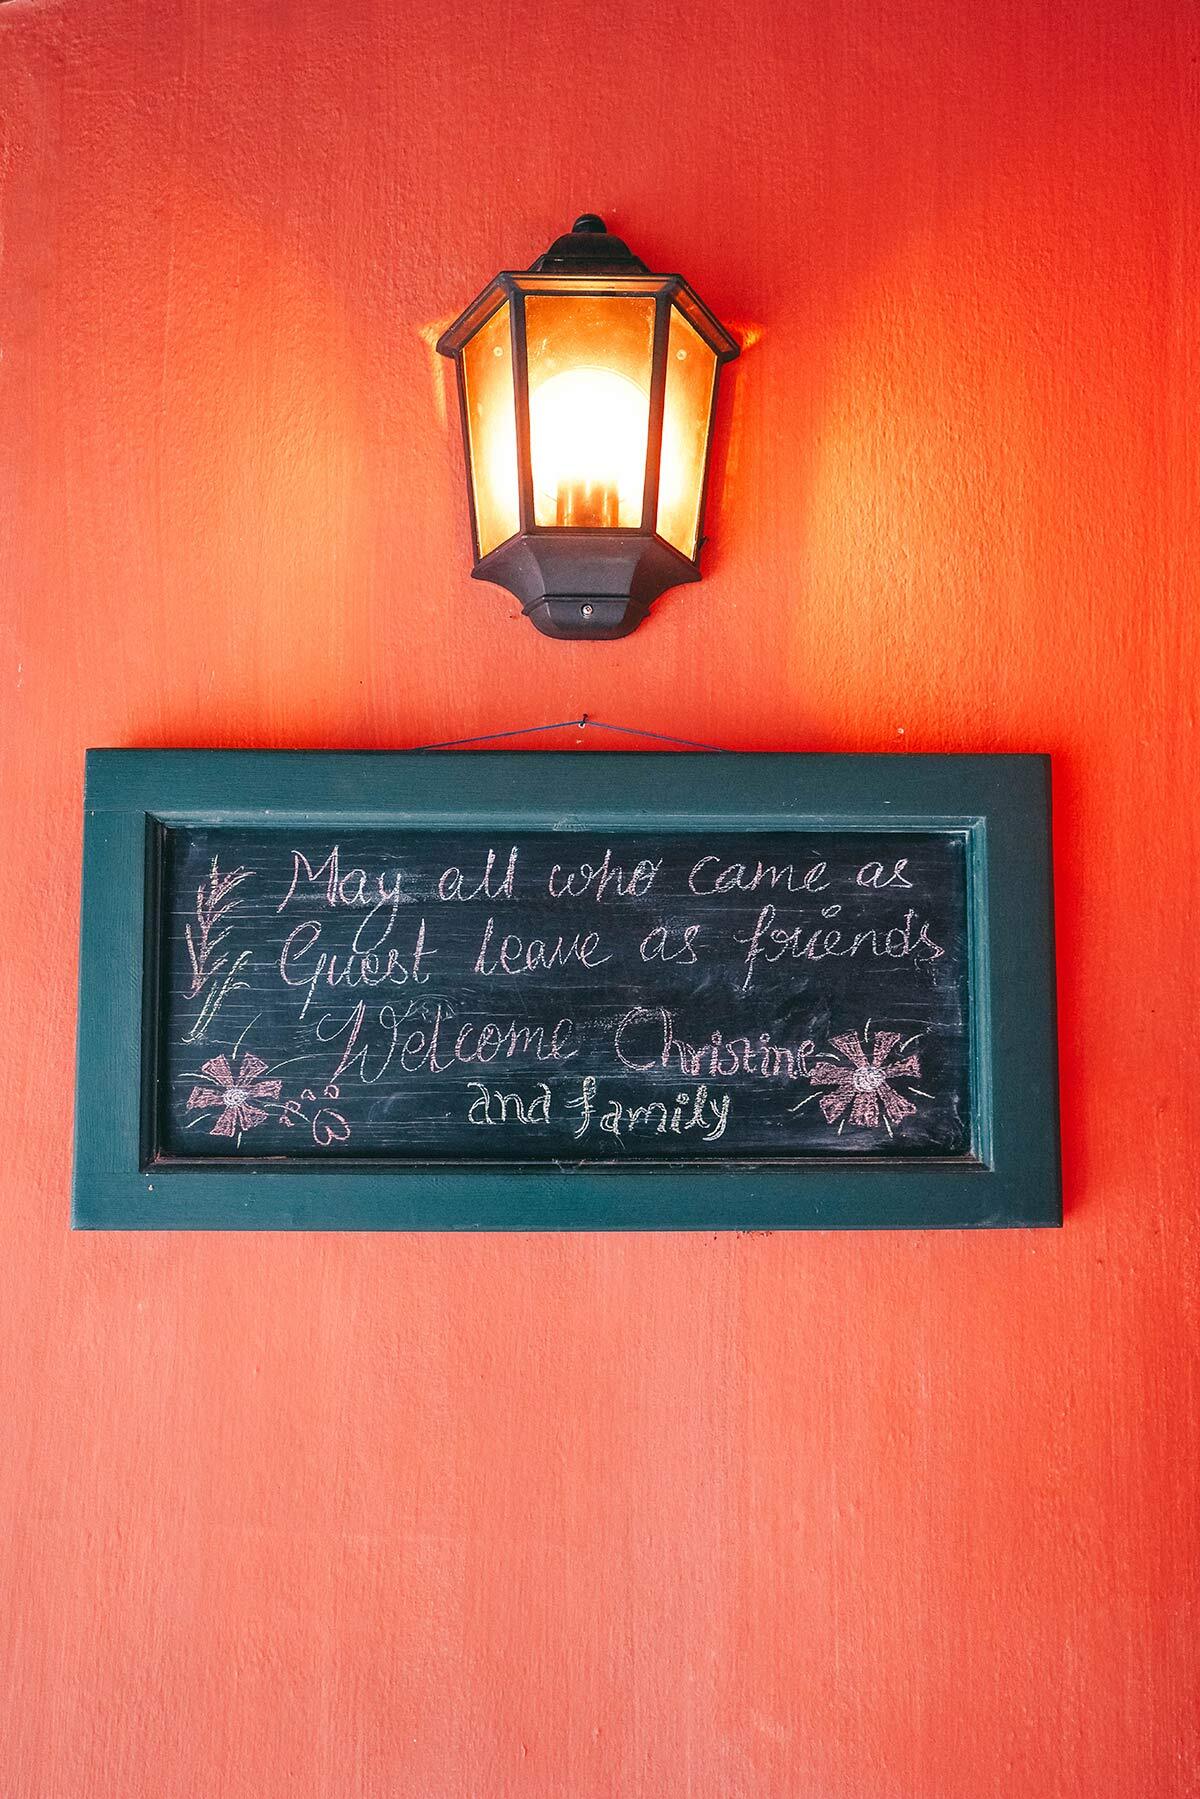 May all who came as
Guest leave as friends
Welcome Christine
and family